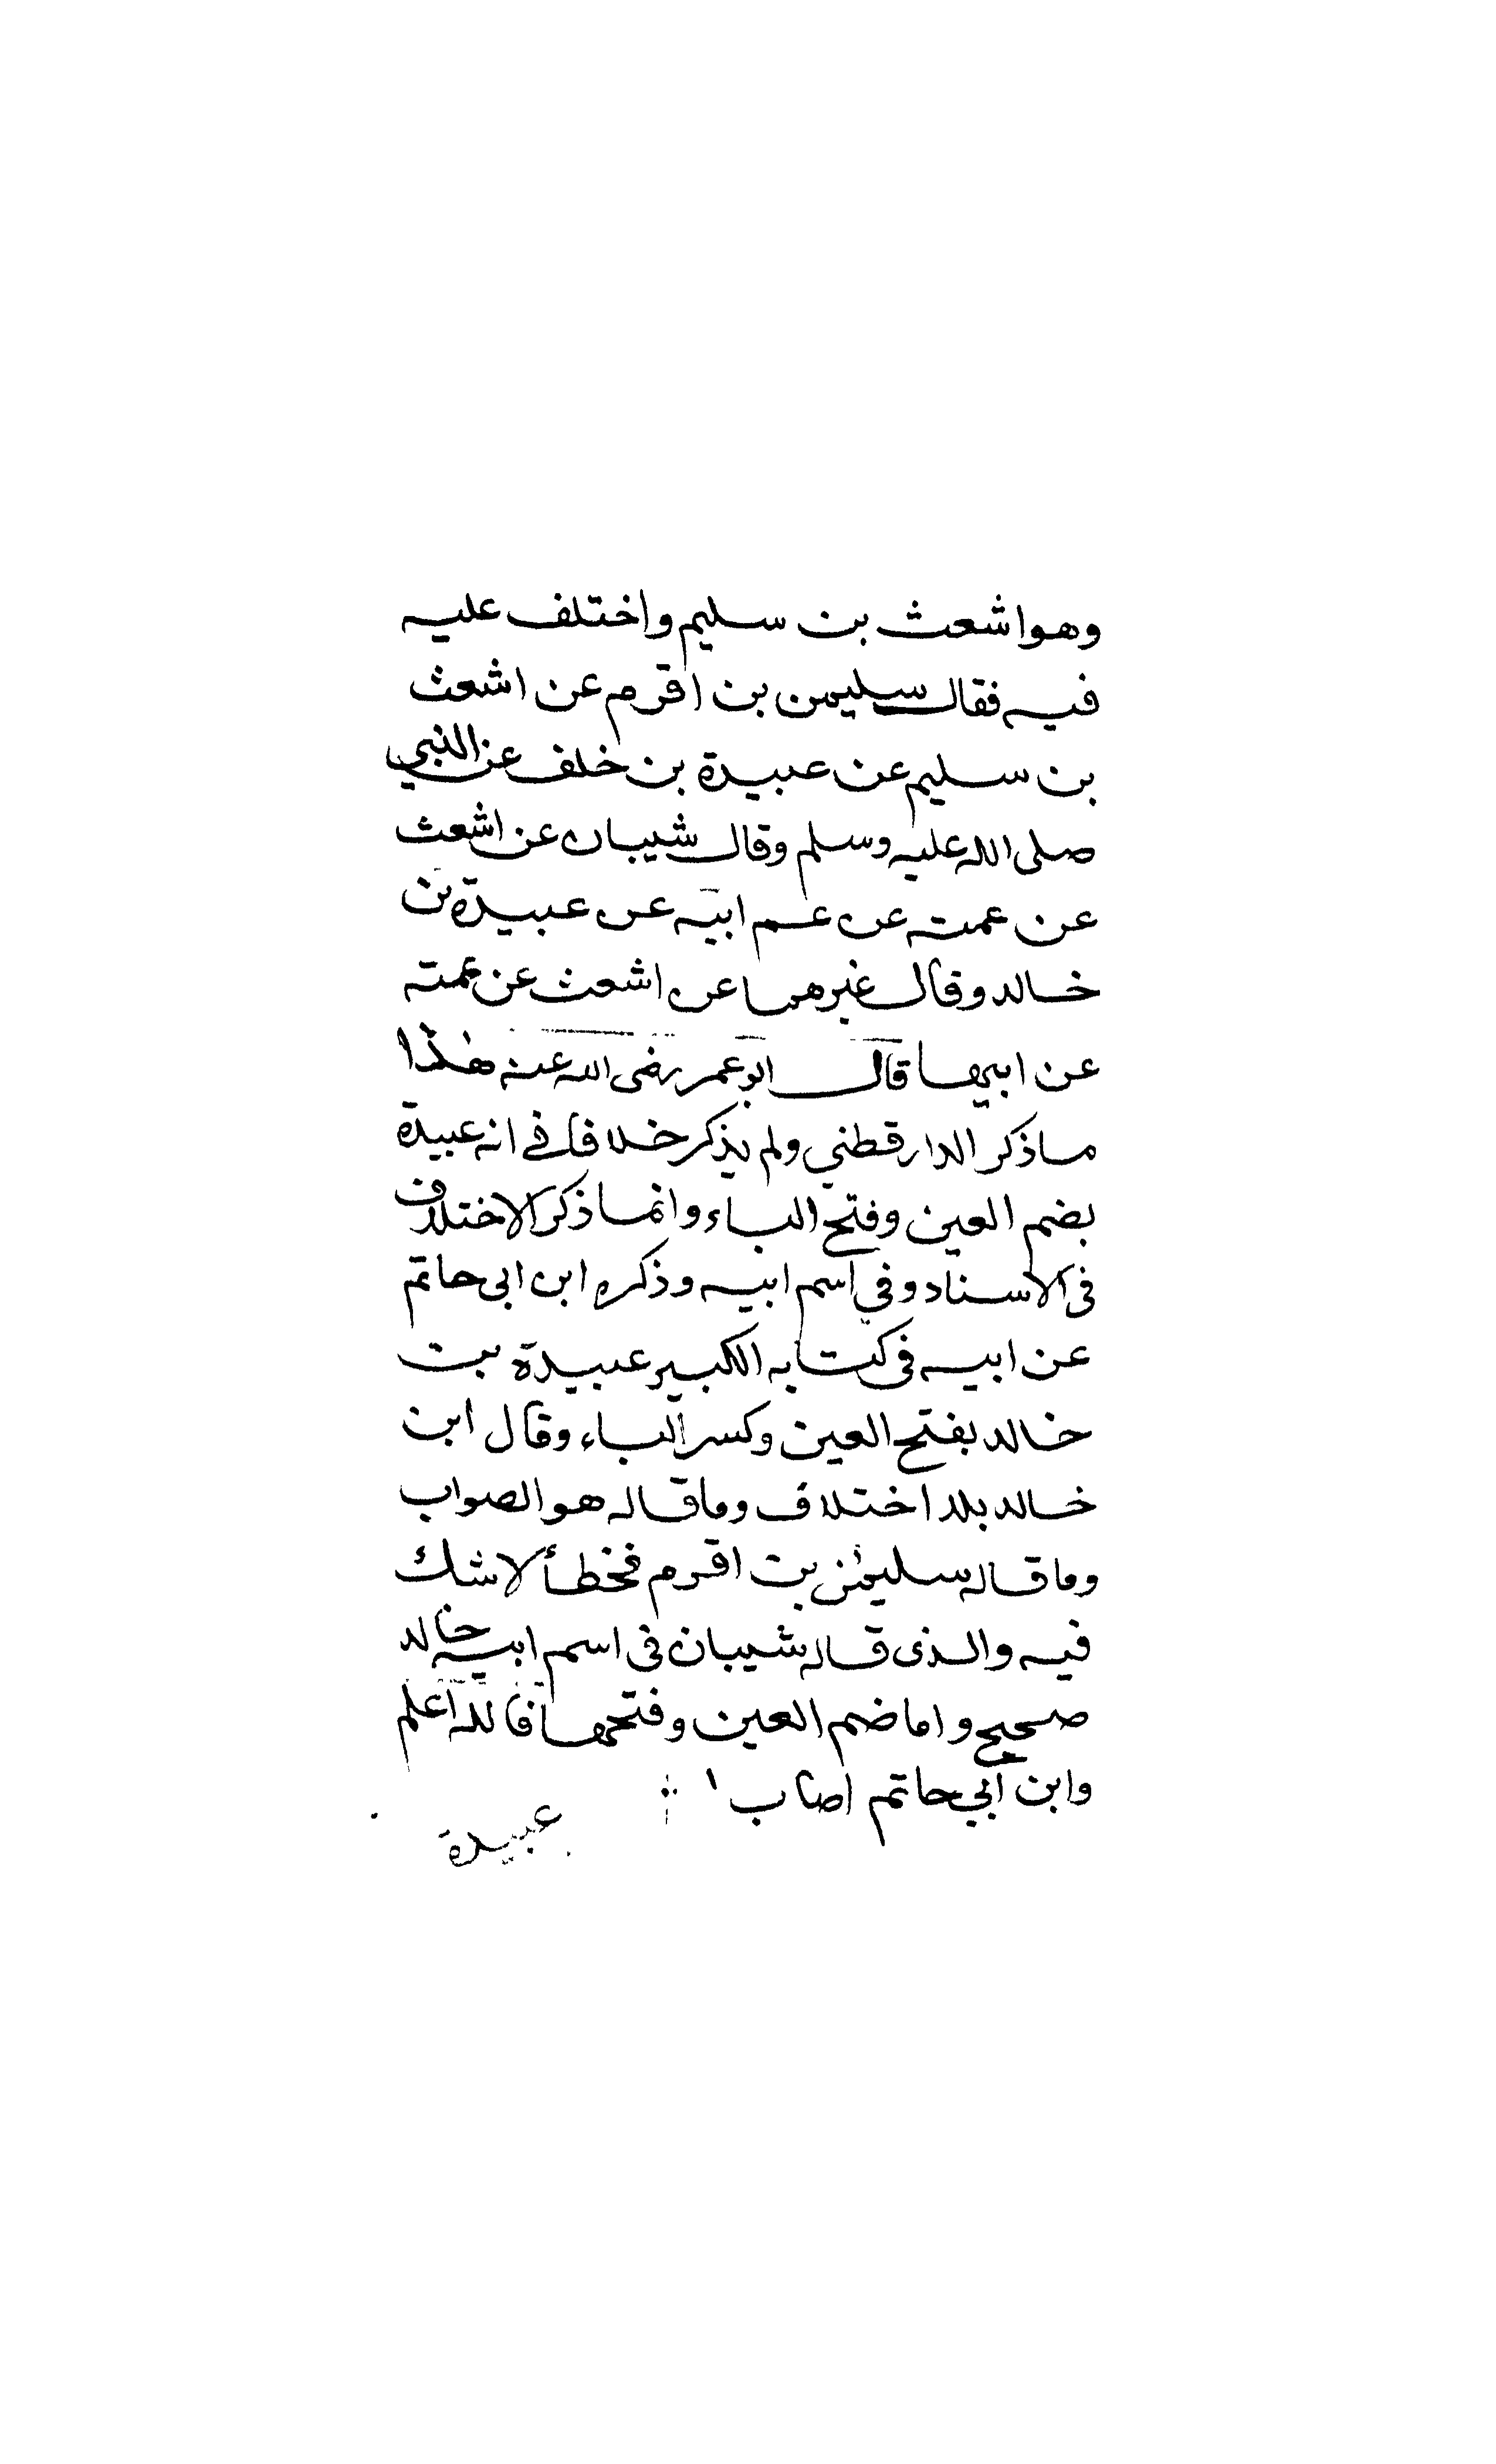 وهو اشعث بن سليم واختلف عليه
فيه فقال سليمن بن اقرم عن اشعث
بن سليم عن عبيدة بن خلف عن النبي
صلى الله عليه وسلم وقال شيبان عن اشعث
عن عمته عن عم ابيه عن عبيدة بن
خالد وقال غيرهما عن اشعث عن عمته
عن ابيها قال ابو عمر رضى الله عنه هذا
ما ذكر الدارقطني ولم يذكر خلافا في انه عبيدة
بضم العين وفتح الباء وانما ذكر الاختلاف
فى الاسناد وفي اسم ابيه وذكره ابن ابى حاتم
عن ابيه فى كتابه الكبير عبيدة بن
خالد بفتح العين وكسر الباء وقال ابن
خالد بلا اختلاف وما قاله هو الصواب
وما قاله سليمن بن اقرم فخطأ لا شك
فيه والذى قاله شيبان فى اسم ابيه خالد
صحيح واما ضم العين وفتحها فالله اعلم
وابن ابي حاتم اصاب
عبيدة